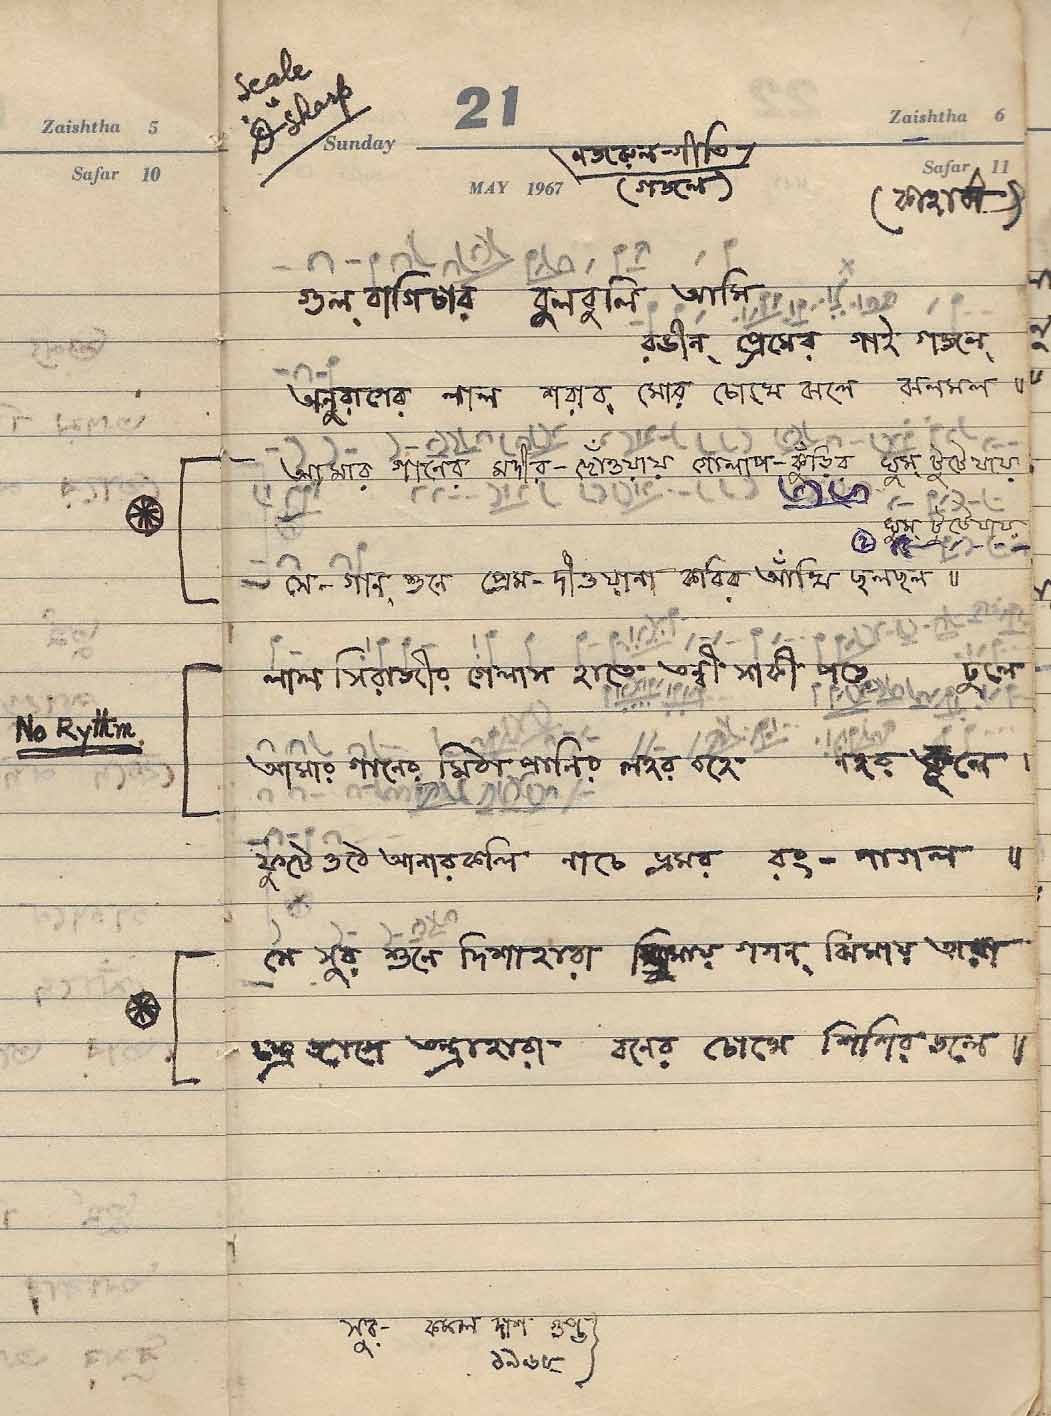 Scale
"D" Sharp
Zaishtha 5
Safar 10
21
Sunday
MAY 1967
Zaishtha 6
Safar 11
নজরুল-গীতি
(গজল)
(কাহার্বা)
গুল্ বাগিচার বুলবুলি আমি
রঙীন্ প্রেমের গাই গজল্
অনুরাগের লাল শরাব্ মোর চোখে ঝলে ঝলমল ॥
আমার গানের মদীর-ছোঁওয়ায় গোলাপ-কুঁড়ির ঘুম্ টুটে যায়
② ঘুম্ টুটে যায়
সে-গান্ শুনে প্রেম-দীওয়ানা কবির আঁখি ছলছল ॥
লাল সিরাজীর গেলাস হাতে তন্বী সাকী পড়ে ঢুলে
No Rythm
আমার গানের মিঠা পানির লহর বহে নহর কূলে ।
ফুটে ওঠে আনারকলি নাচে ভ্রমর রং-পাগল ॥
সে সুর শুনে দিশাহারা ঝিমায় গগন্ ঝিমায় তারা
চন্দ্র জাগে তন্দ্রাহারা বনের চোখে শিশির জল ॥
সুর- কমল দাশ গুপ্ত